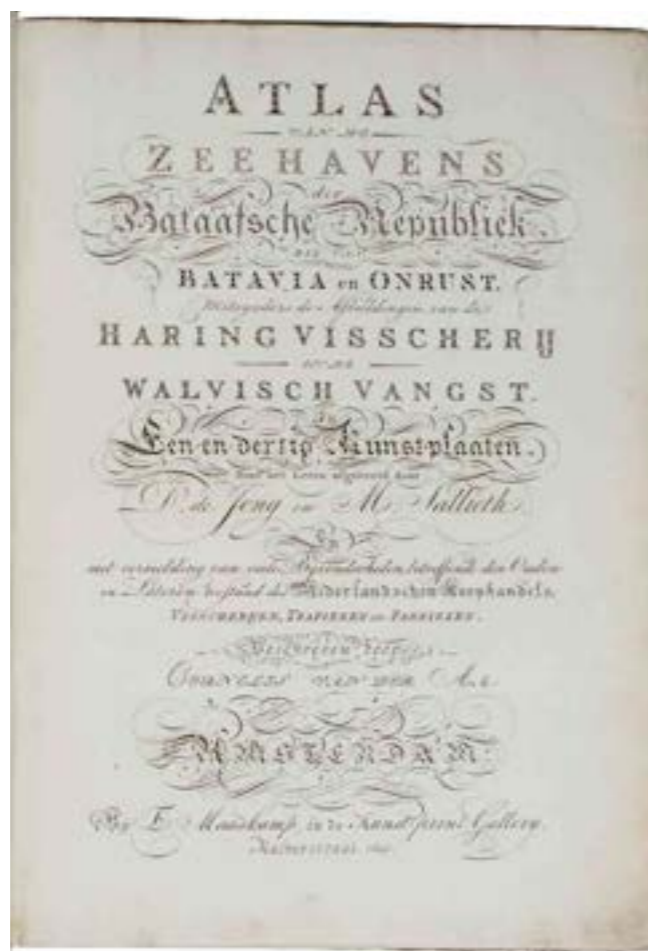 ATLAS
VAN ALLE
ZEEHAVENS
der
Bataafsche Republiek.
BATAVIA en ONRUST.
Mitsgaders de Afbeeldingen van de
HARINGVISSCHERIJ
WALVISCH VANGST.
In
Een en dertig Kunstplaaten.
Naar het Leven uitgevoerd door
D. de Jong en M. Sallieth.
En
met vermelding van veele Byzonderheden, betreffende den Ouden
en Lateren toestand des Nederlandschen Koophandels,
VISSCHERIJEN, TRAFIEKEN en FABRIEKEN.
Beschreven door
CORNELIS VAN DER AA.
AMSTERDAM.
By E. Maaskamp, in de Kunst Prent Gallery,
Kalverstraat